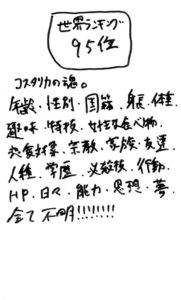 世界ランキング
95位
コスタリカの魂。
年齢・性別・国籍・身長・体重
趣味・特技・女性・食べ物
恋愛対象・宗教・家族・友達
人種・学歴・必殺技・行動
HP・日々・能力・思想・夢
全て不明!!!!!!!!